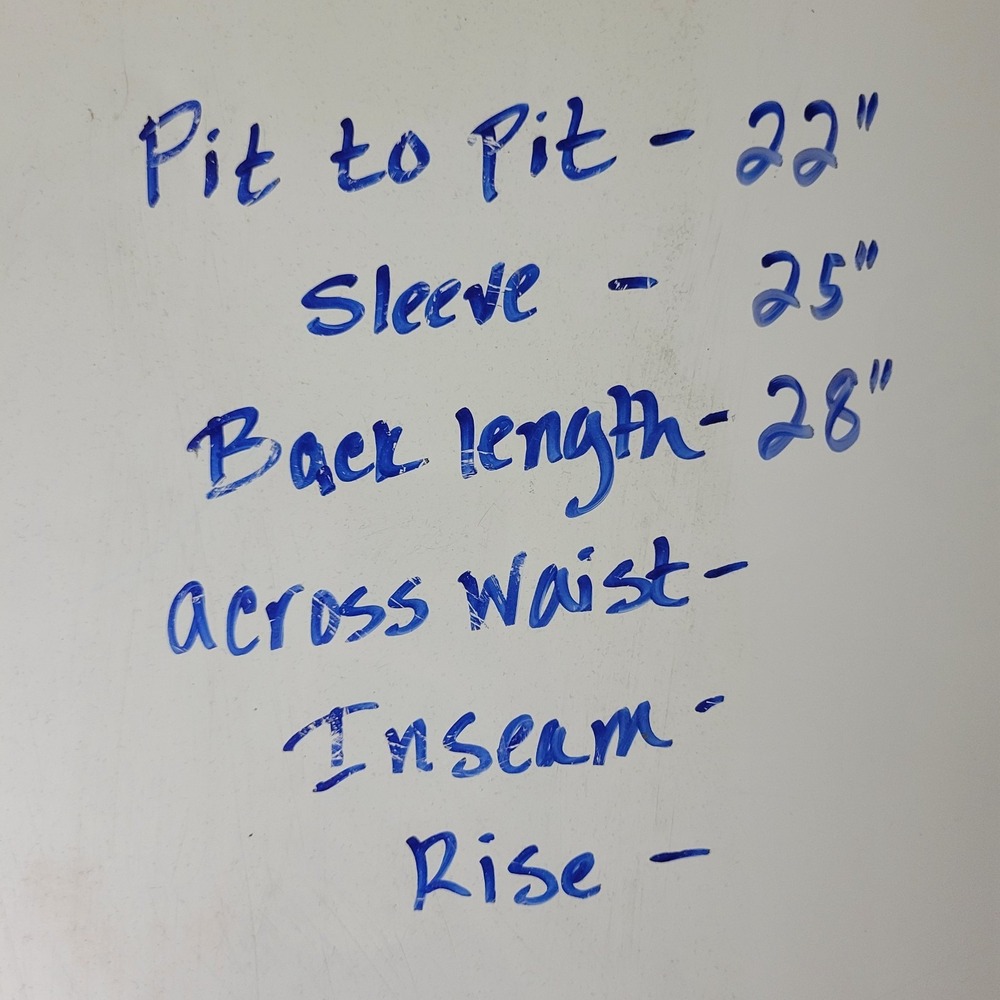 Pit to Pit - 22"
Sleeve - 25"
Back length - 28"
across Waist -
Inseam -
Rise -